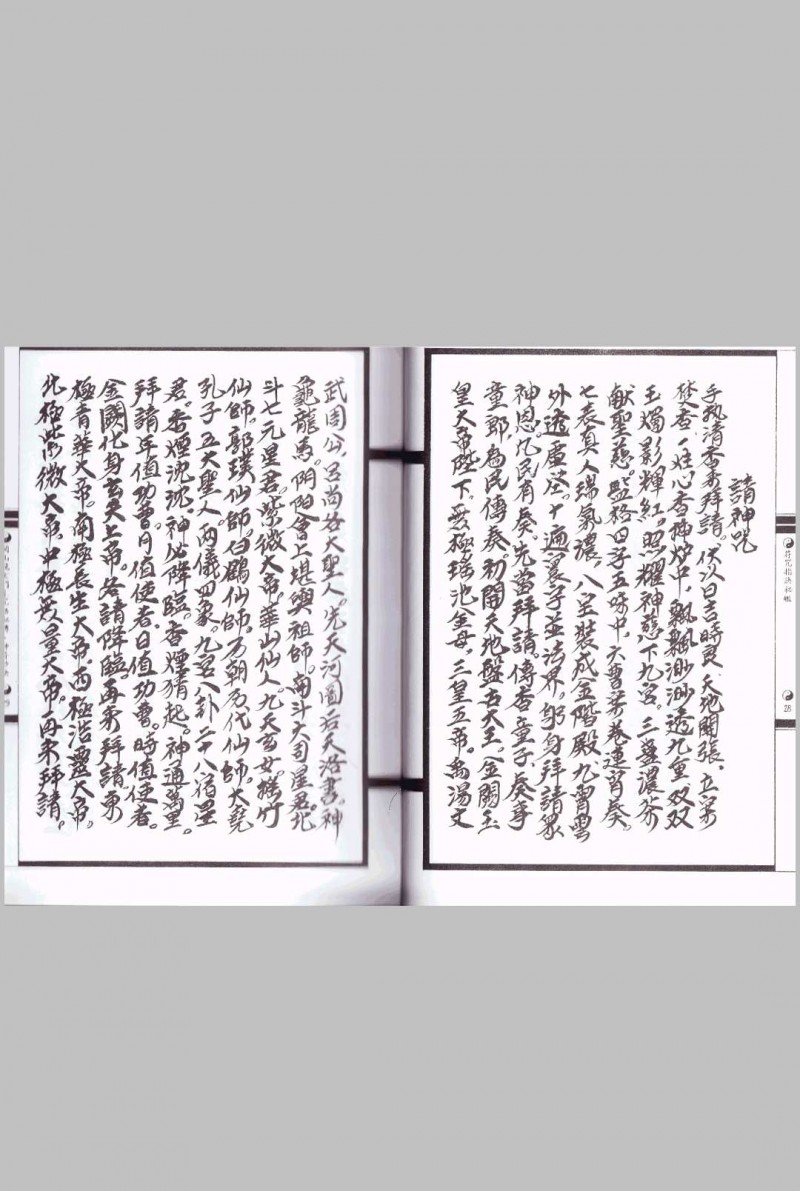 請神咒
手執清香來拜請。伏以日吉時良天地開張。立案
焚香。一炷心香神炉中。飄飄渺渺透九重。双双
玉燭影輝紅。照耀神慈下九宮。三盞濃茶
献聖慈。監格日子五味中。六曹案卷連宵奏。
七表真人瑞氣濃。八宝裝成金階殿。九霄雲
外透虛空。十遍裏字並法界。躬身拜請眾
神恩。凡民有奏。先當拜請。傳香童子奏事
童郎。為民傳奏。初開天地盤古大王。金闕玉
皇大帝陛下。無極瑤池金母。三皇五帝。禹湯文
武周公。呂尚等大聖人。先天河圖后天洛書。神
龜龍馬。陰陽會上堪輿祖師。南斗大司星君。北
斗七元星君。紫微大帝。華山仙人九天玄女。
仙師。郭璞仙師。白鶴仙師。万朝历代仙師。大堯
孔子五大聖人。兩儀四象。九宮八卦二十八宿星
君。香煙沈沈。神必降臨。香煙猜起。神通萬里。
拜請年值功曹。月值使者。日值功曹。時值使者。
金闕化身玄天上帝。各請降臨。再來拜請東
極青華大帝。南極長生大帝。西極浩靈大帝。
北極紫微大帝。中極黃量大帝。再來拜請。
符咒指訣秘鑑
28